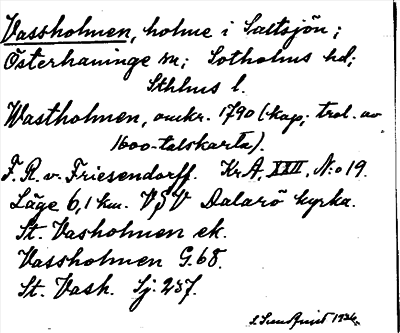 Vassholmen, holme i Saltsjön;
Österhaninge sn; Sotholms hd;
Sthlms l.
Wastholmen, omkr. 1790 (kap; trol. av
1600-talskarta).
F. R. v. Friesendorff. Kr A, XXII, N:o 19.
Läge 6,1 km. VSV Dalarö kyrka.
St. Vasholmen ek.
Vassholmen G. 68.
St. Vash. Sj. 257.
1934